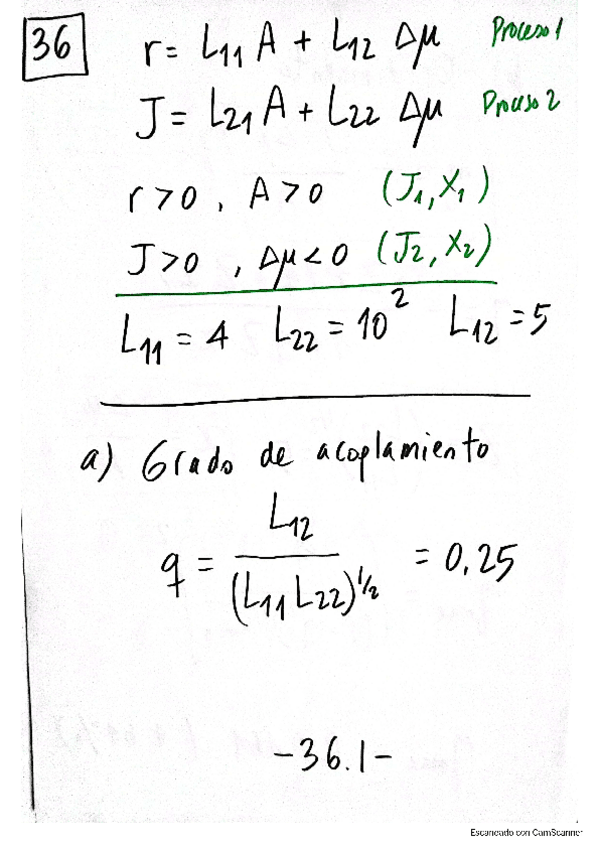 36
r = L11 A + L12 Δμ Proceso 1
J = L21 A + L22 Δμ Proceso 2
r > 0 , A > 0 (J1, X1)
J > 0 , Δμ < 0 (J2, X2)
L11 = 4 L22 = 10² L12 = 5
a) Grado de acoplamiento
q = L12 / (L11 L22)^1/2 = 0,25
-36.1-
Escaneado con CamScanner